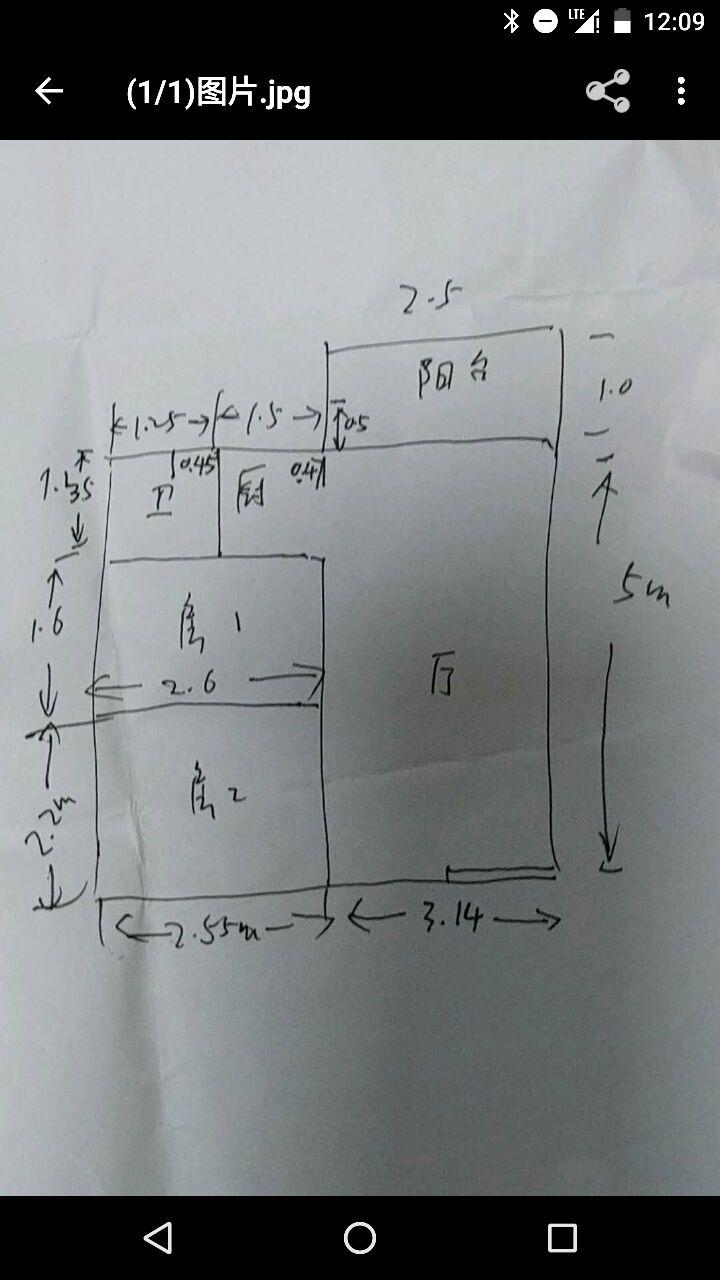 LTE 12:09
(1/1)图片.jpg
2.5
阳台
1.0
1.25 1.5 0.5
0.45 0.47
1.35
卫 厨
5m
1.6
房 1
2.6
厅
房 2
2.2m
2.55m 3.14